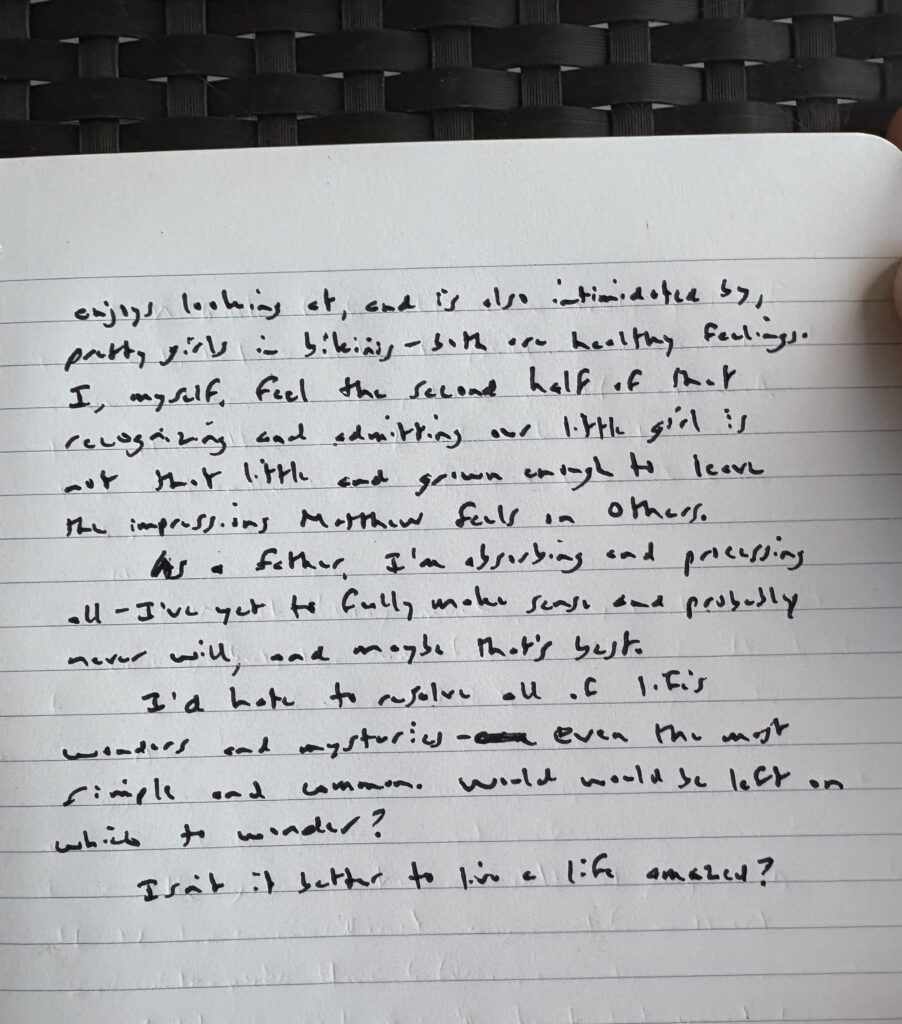 enjoys looking at, and is also intimidated by,
pretty girls in bikinis - both are healthy feelings.
I, myself, feel the second half of that
recognizing and admitting our little girl is
not that little and grown enough to leave
the impressions Matthew feels on others.
As a father, I'm absorbing and processing
all - I've yet to fully make sense and probably
never will, and maybe that's best.
I'd hate to resolve all of life's
wonders and mysteries - even the most
simple and common. Would would be left on
which to wonder?
Isn't it better to live a life amazed?